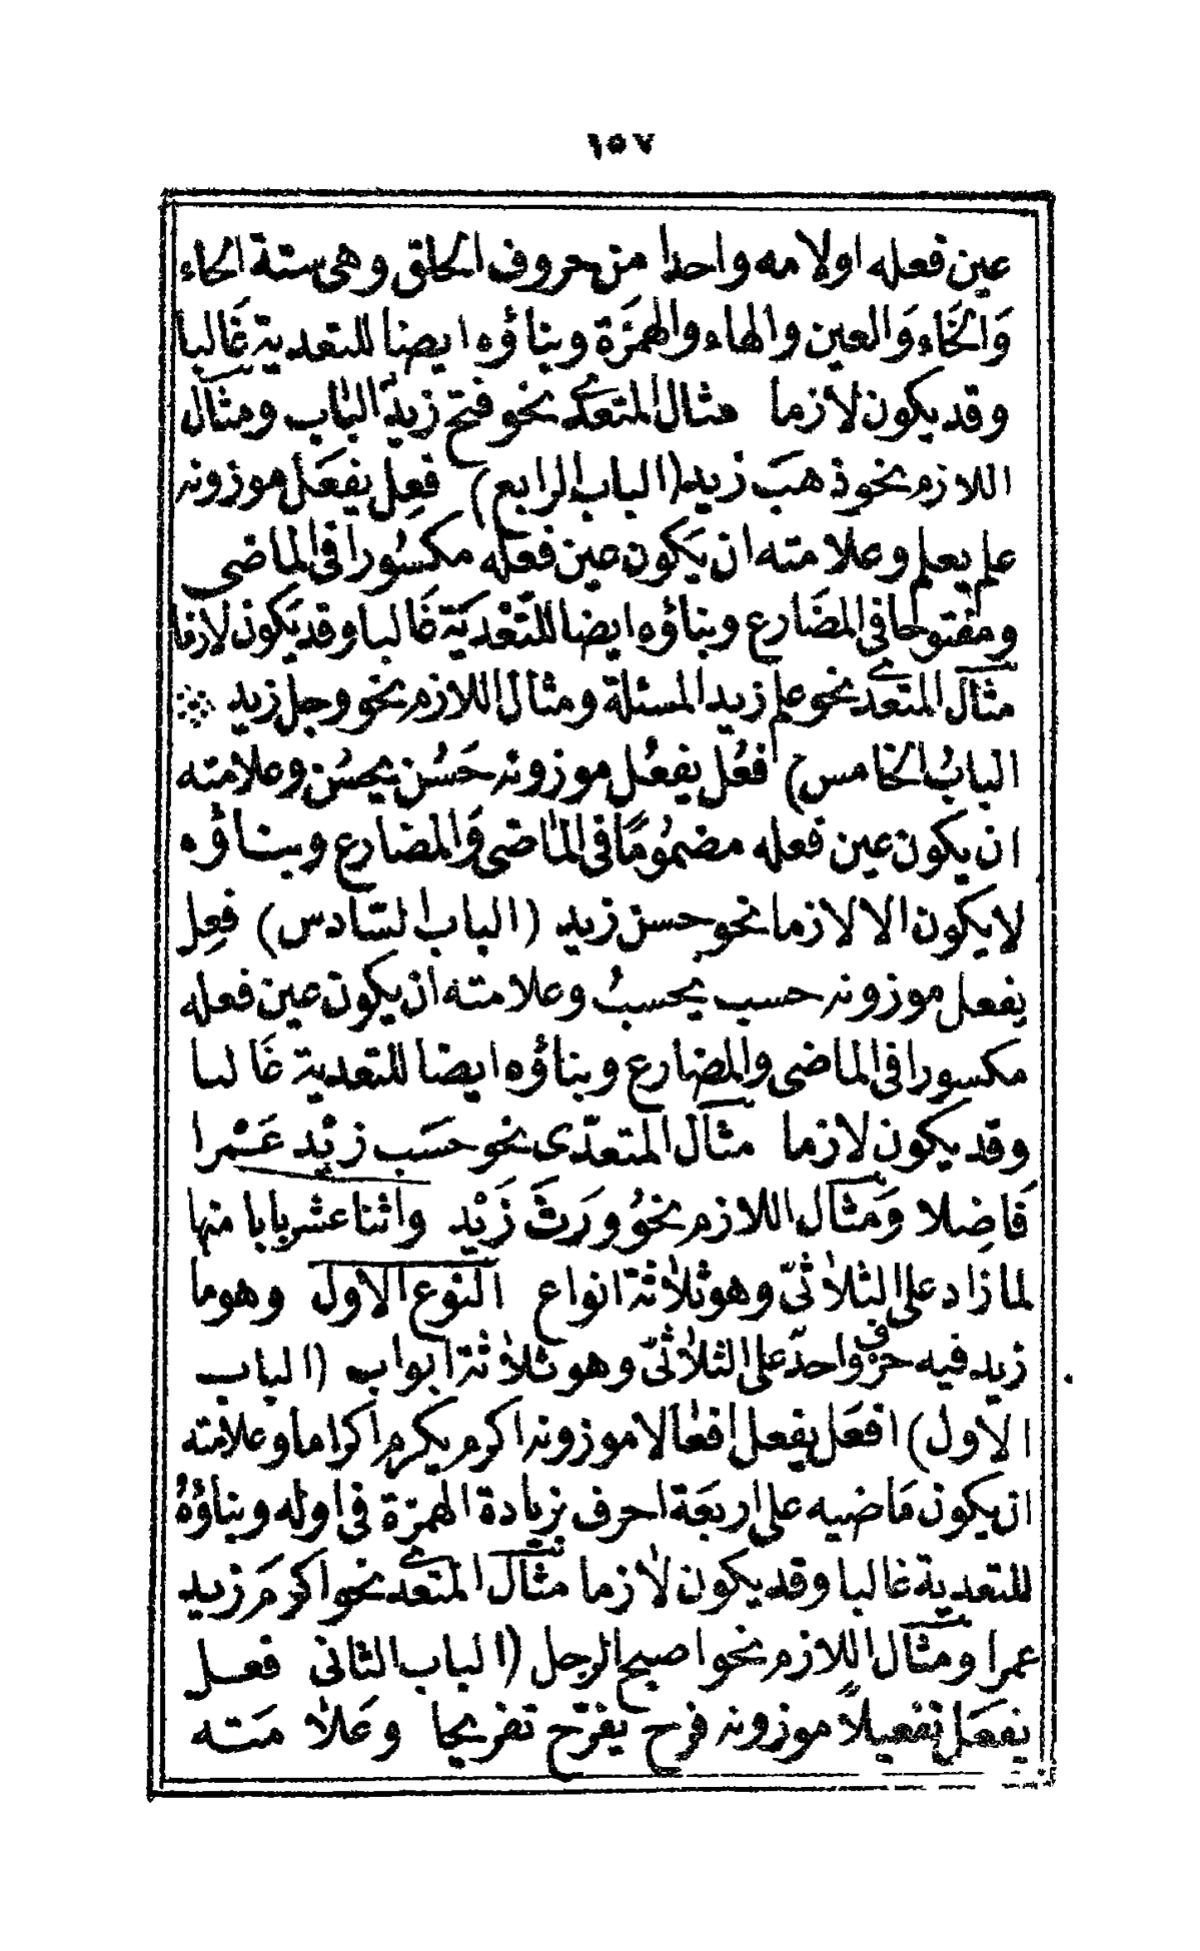 ١٥٧
عين فعله اولامه واحدا من حروف الحلق وهى ستة الحاء
وَالخَاء وَالعين والهاء والهمَزة وبناؤه ايضا للتعدية غَالبا
وقد يكون لازما مثال المتعدى نحو فتح زيد الباب ومثال
اللازم نحو ذهبَ زيد (الباب الرابع) فعِل يفعَل موزونه
علم يعلم وعلامته ان يَكون عين فعله مكسُورا فى الماضى
ومفتوحا فى المضَارع وبناؤه ايضا للتّعْديَة غَالبا وقد يَكون لازما
مثال المتعدى نحو علم زيد المسئلة ومثال اللازم نحو وجل زيد
البابُ الخامس) فعُل يفعُل موزونه حَسُن يحسُن وعلامته
ان يكون عين فعله مضمُومًا فى المَاضى وَالمضارع وبناؤه
لايكون الالازما نحو حسن زيد (الباب السّادس) فعِل
يفعل موزونه حسب يحسبُ وعلامته ان يكون عين فعله
مكسورا فى الماضى والمضارع وبناؤه ايضا للتعدية غَالبا
وقد يكون لازما مثال المتعدّى نحو حسَب زيْد عَمْرا
فَاضِلا وَمثال اللازم نحوُ وَرثَ زَيْد واثنا عشر بابا منها
لما زاد على الثلاثىّ وهو ثلاثة انواع النوع الاول وهوما
زيد فيه حرف واحد على الثلاثىّ وهو ثلاثة ابواب (الباب
الاول) افعَل يفعل افعالا موزونه اكرم يكرم اكراما وعلامته
ان يكون مَاضيه على اربعَة احرف بزيادة الهمزة فى اوله وبناؤهُ
للتعدية غالبا وقد يكون لازما مثال المتعدى نحو اكرمَ زيد
عمرا ومثال اللازم نحو اصبح الرجل (الباب الثانى فعل
يفعَل تفعيلاً موزونه فرح يفرّح تفريحا وعَلامَته